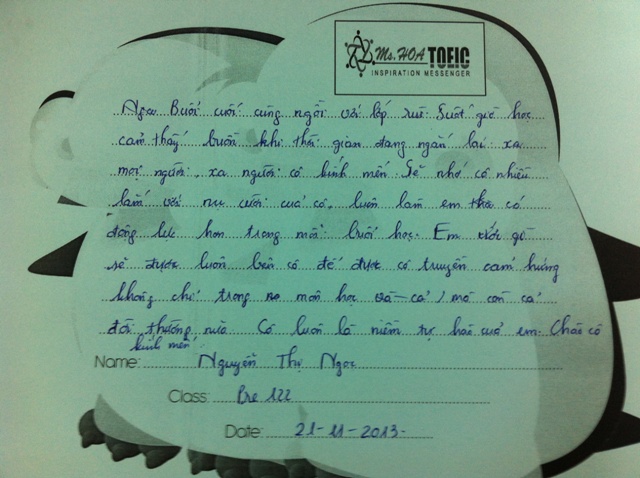 Ms. HOA TOEIC
INSPIRATION MESSENGER
Buổi cuối cùng ngồi với lớp rùi. Suốt giờ học
cảm thấy buồn khi thời gian đang ngắn lại xa
mọi người, xa người cô kính mến. Sẽ nhớ cô nhiều
lắm với nụ cười của cô, luôn làm em thấy có
động lực hơn trong mỗi buổi học. Em ước gì
sẽ được luôn bên cô để được cô truyền cảm hứng
không chỉ trong môn học mà còn cả
đời thường nữa. Cô luôn là niềm tự hào của em. Chào cô
kính mến
Name: Nguyễn Thị Ngọc
Class: Pre 122
Date: 21-11-2013